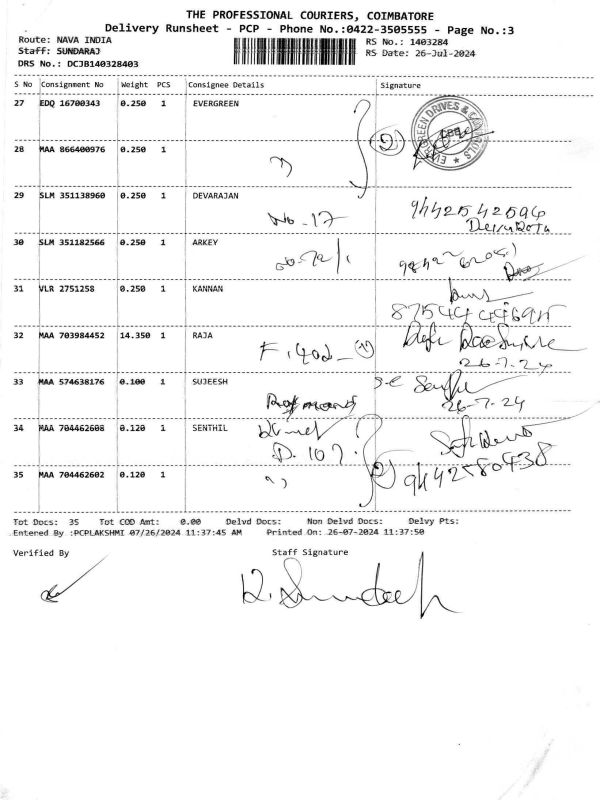 THE PROFESSIONAL COURIERS, COIMBATORE
Delivery Runsheet - PCP - Phone No.:0422-3505555 - Page No.:3
Route: NAVA INDIA
RS No.: 1403284
Staff: SUNDARAJ
RS Date: 26-Jul-2024
DRS No.: DCJB140328403
S No Consignment No Weight PCS Consignee Details Signature
27 EDQ 16700343 0.250 1 EVERGREEN
EVERGREEN DRIVES & CONTROLS
CBE
28 MAA 866400976 0.250 1
29 SLM 351138960 0.250 1 DEVARAJAN
No. 17
9442542594
30 SLM 351182566 0.250 1 ARKEY
31 VLR 2751258 0.250 1 KANNAN
32 MAA 703984452 14.350 1 RAJA
F.402
26-7-24
33 MAA 574638176 0.100 1 SUJEESH
26-7-24
34 MAA 704462608 0.120 1 SENTHIL
D. 107.
35 MAA 704462602 0.120 1
9442580438
Tot Docs: 35 Tot COD Amt: 0.00 Delvd Docs: Non Delvd Docs: Delvy Pts:
Entered By :PCPLAKSHMI 07/26/2024 11:37:45 AM Printed On: 26-07-2024 11:37:50
Verified By Staff Signature